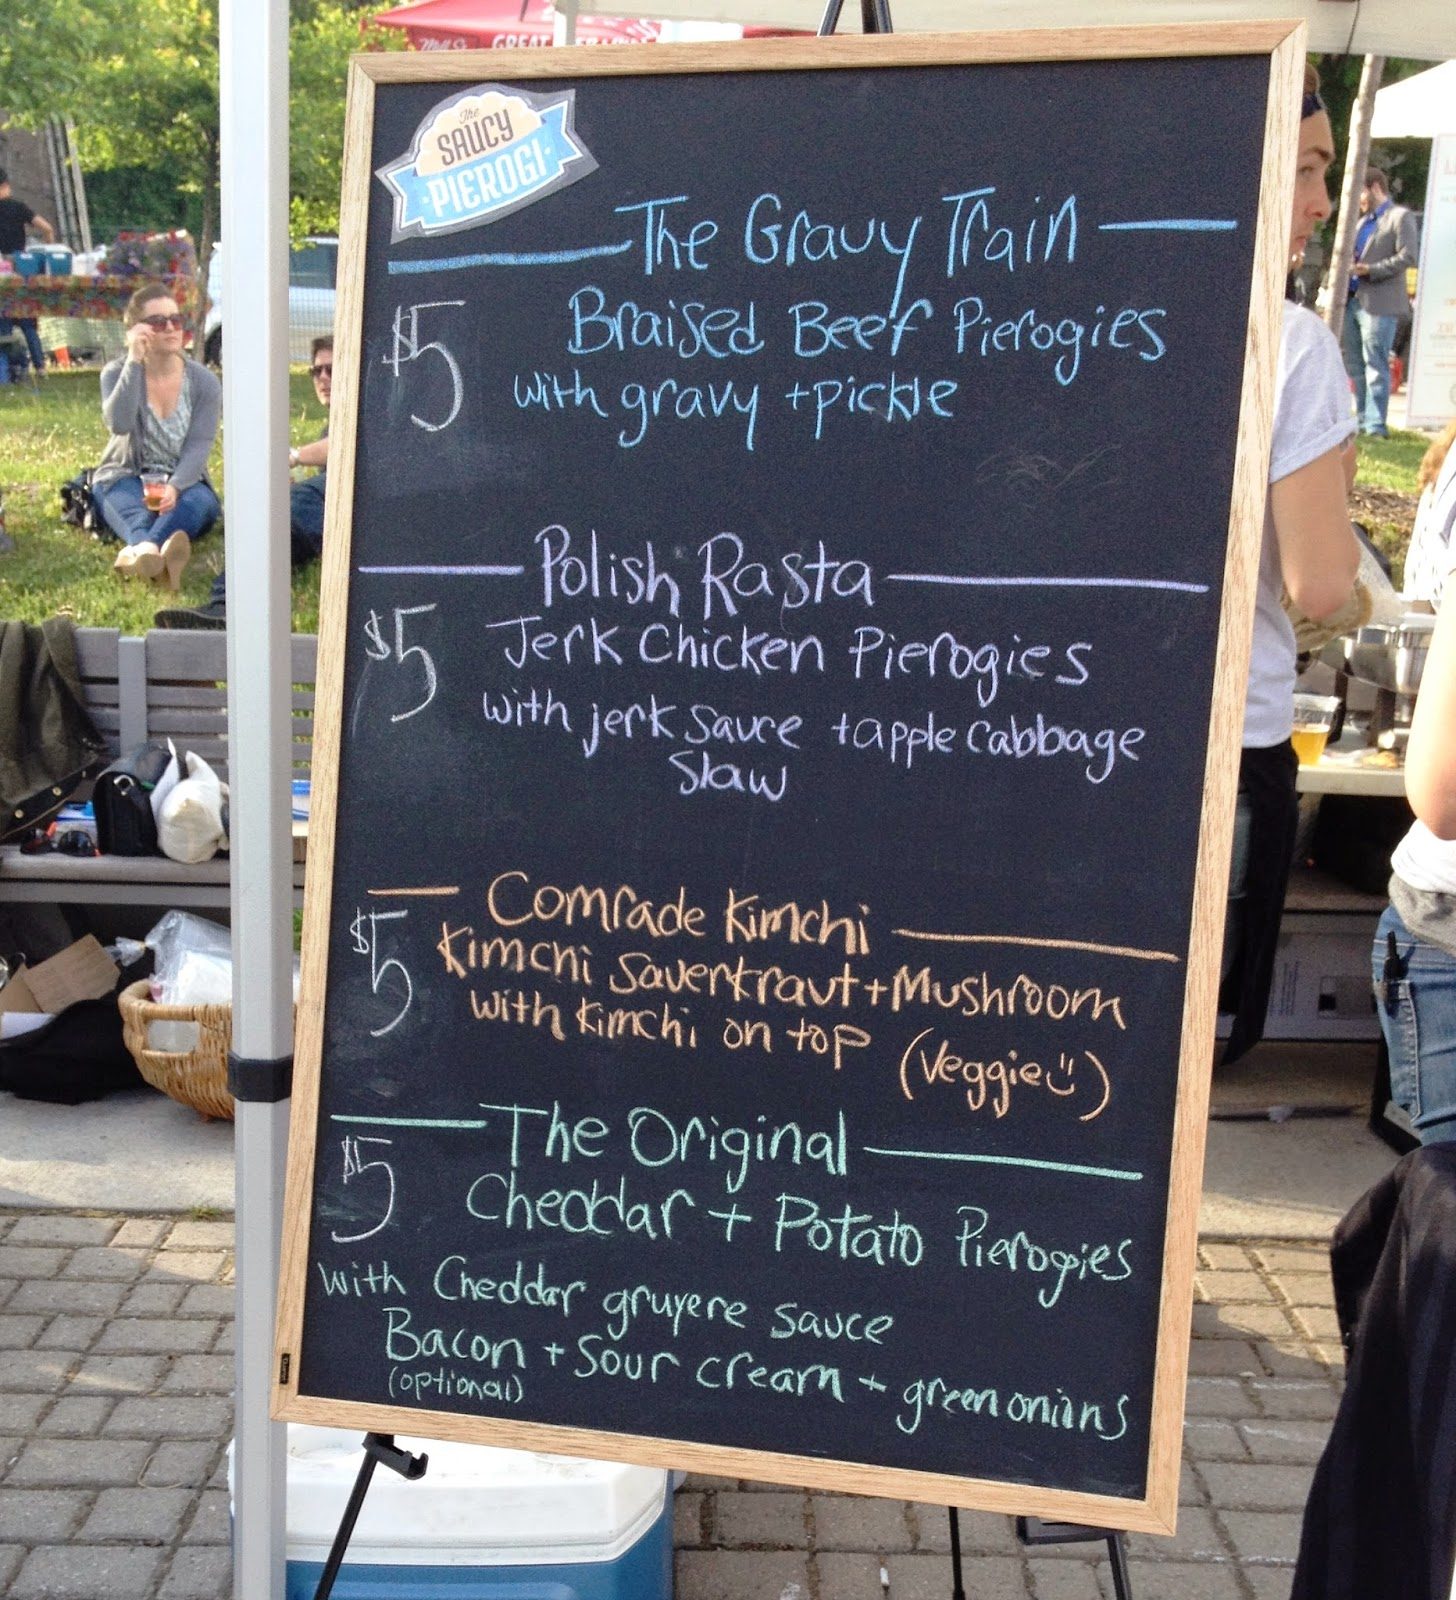 The
SAUCY
PIEROGI
The Gravy Train
$5
Braised Beef Pierogies
with gravy + pickle
Polish Rasta
$5
Jerk Chicken Pierogies
with jerk sauce + apple cabbage
slaw
Comrade Kimchi
$5
Kimchi Sauerkraut + Mushroom
with kimchi on top (Veggie)
The Original
$5
Cheddar + Potato Pierogies
with Cheddar gruyere sauce
Bacon + sour cream + green onions
(optional)